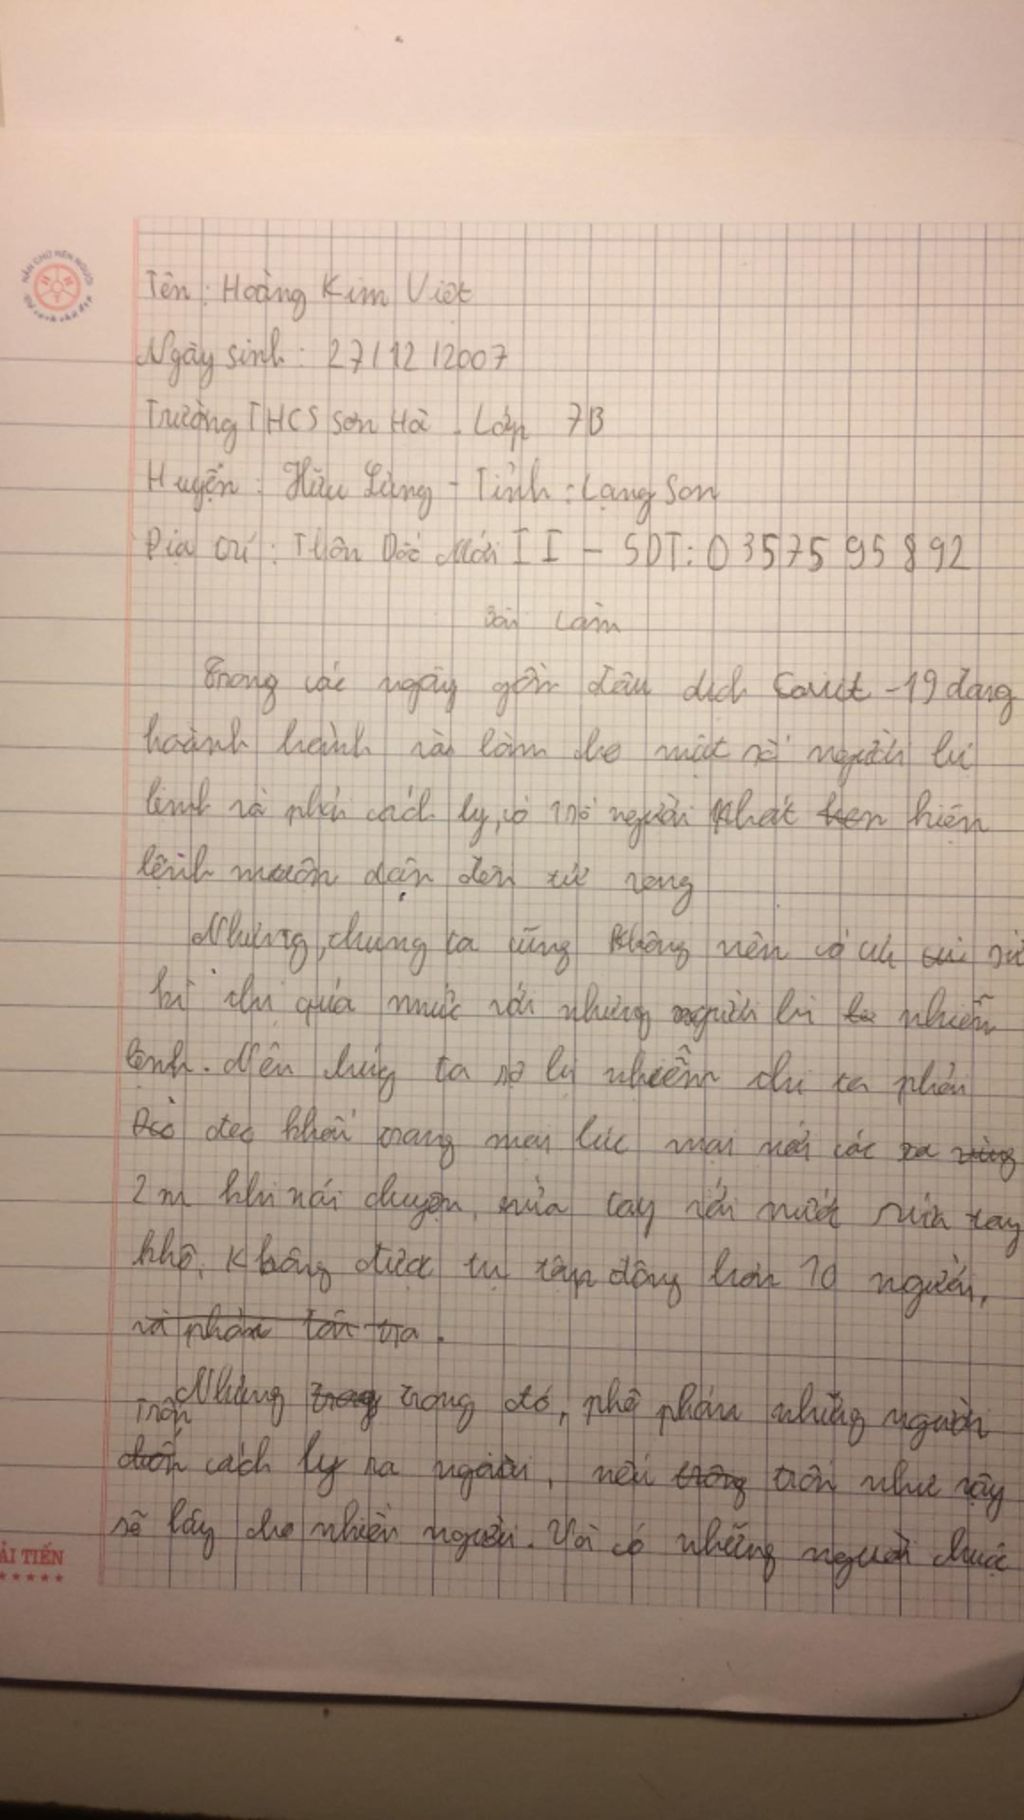 NẮN CHỮ NÊN NGƯỜI
Tên: Hoàng Kim Việt
Ngày sinh: 27/12/2007
Trường THCS Sơn Hà. Lớp 7B
Huyện: Hữu Lũng - Tỉnh: Lạng Sơn
Địa chỉ: Thôn Dốc Mới II - SDT: 0357595892
Bài Làm
Trong các ngày gần đâu dịch Covid-19 đang
hoành hành và làm cho một số người bị
bệnh và phải cách ly, có 1 số người phát hiện
bệnh muộn dận đến tử vong
Nhưng, chung ta cũng không nên có
kì thị quá mức với những người bị nhiễm
bệnh. Nên chúng ta sợ bị nhiễm thì ta phải
đeo khẩu trang mọi lúc mọi nơi các xa
2m khi nói chuyện, rửa tay với nước rửa tay
khô, Không được tụ tập đông hơn 10 người,
và phản
Nhưng trong đó, phê phán những người
Trốn cách ly ra ngoài, nếu trốn như vậy
sẽ lây cho nhiều người. Và có những người
ẢI TIẾN